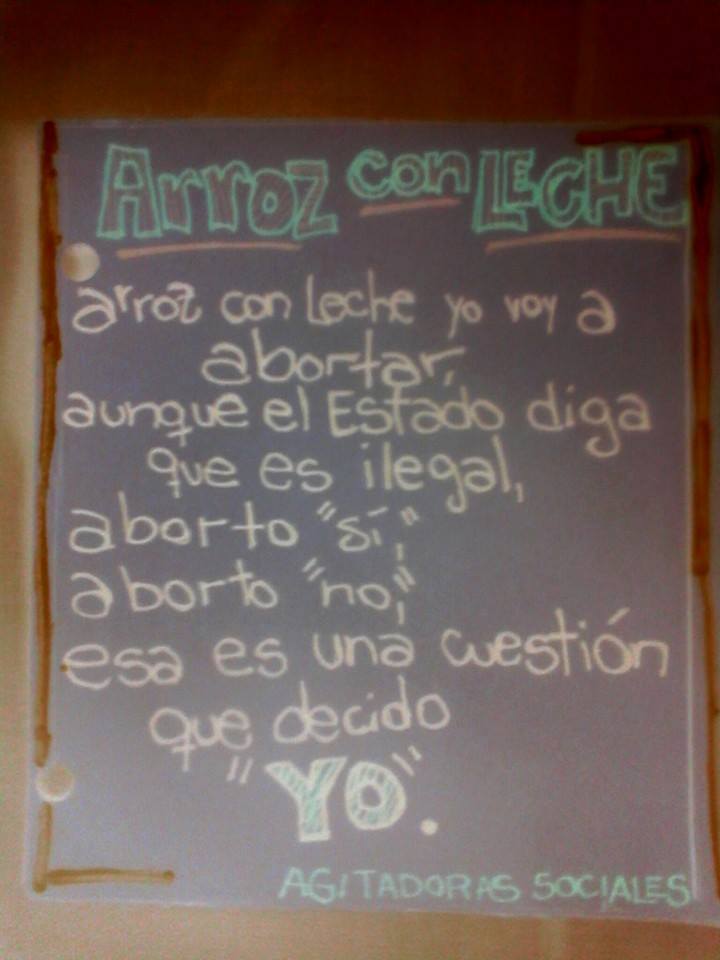 Arroz con LECHE
arroz con Leche yo voy a
abortar,
aunque el Estado diga
que es ilegal,
aborto "sí,"
aborto "no,"
esa es una cuestión
que decido
"YO".
AGITADORAS SOCIALES